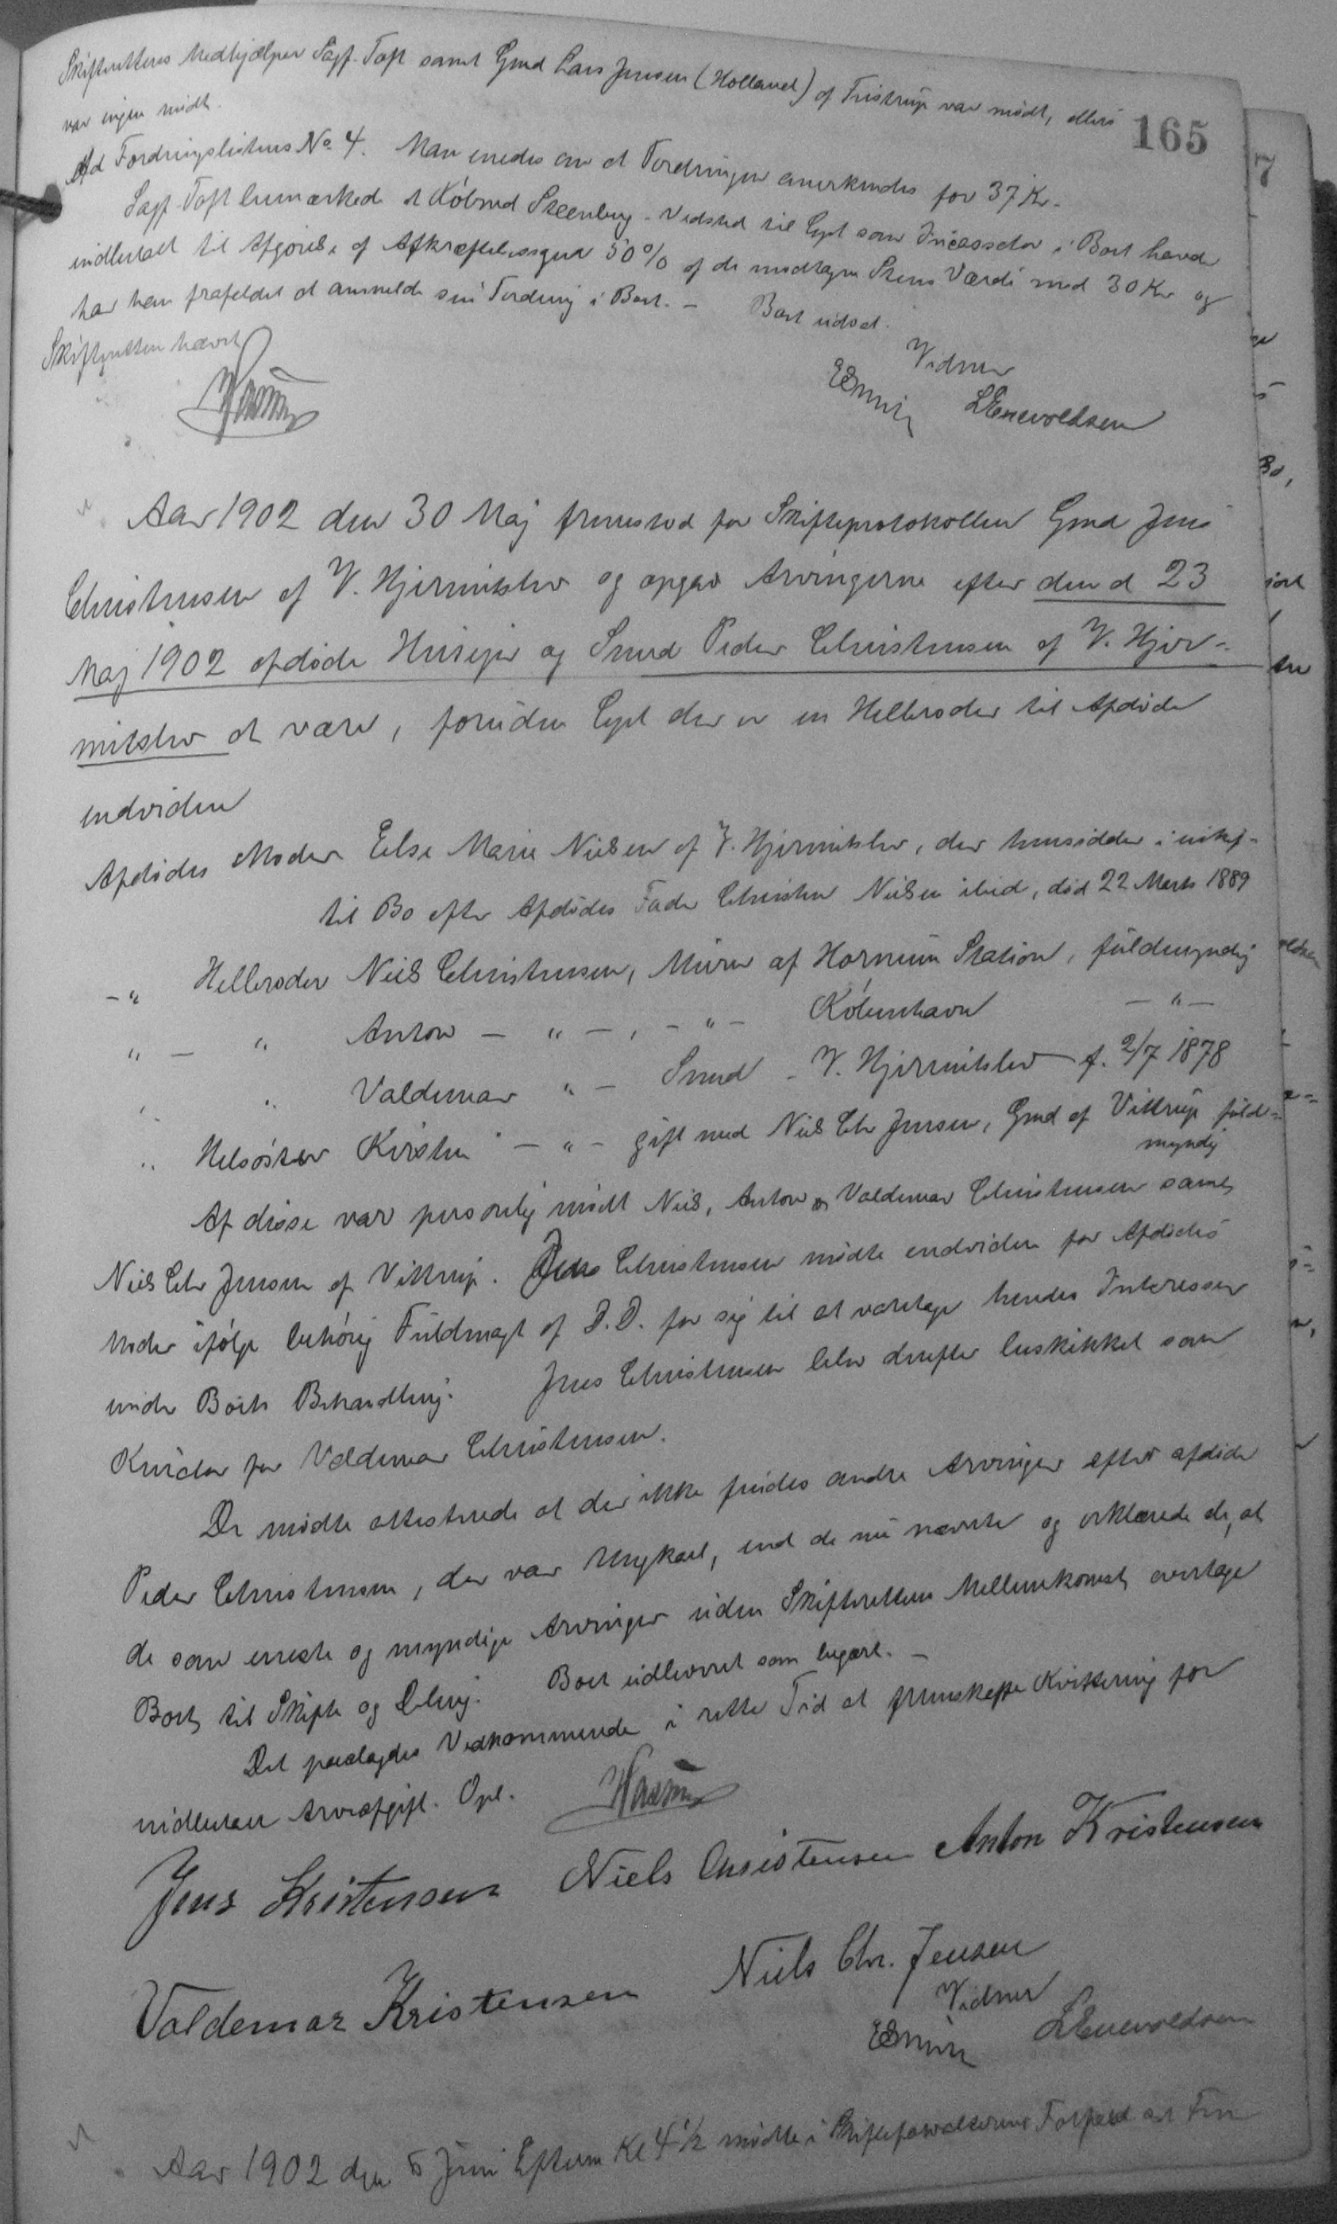 Skifterettens Medhjælper Sagf. Toft samt Gmd Lars Jensen (Holland) af Tristrup var mødt, ellers
var ingen mødt.
165
Ad Fordringslistens No 4. Man enedes om at Fordringen anerkendes for 37 Kr.
Sagf. Toft bemærkede at Købmd Steenberg - Vedsted til Gjel som Incassator i Boet havde
indbetalt til Afgørelse af Afkræftelsessagen 50% af de modtagne Stens Værdi med 30 Kr og
har han frafaldet at anmelde sin Fordring i Boet. - Boet udsat.
Skifteretten hævet
Vidner
LEnevoldsen
Aar 1902 den 30 Maj fremstod for Skifteprotokollen Gmd Jens
Christensen af V. Hjermitslev og opgav Arvingerne efter den d 23
Maj 1902 afdøde Husejer og Smed Peder Christensen af V. Hjer-
mitslev at være, foruden Cpt der er en Helbroder til Afdøde
endvidere
Afdødes Moder Else Marie Nielsen af V. Hjermitslev, der hensidder i uskif-
til Bo efter Afdødes Fader Christen Nielsen ibid, død 22 Marts 1889
- " Helbroder Niels Christensen, Murer af Hornum Station, fuldmyndig
" - " Anton - " - , - " - København - " -
" " Valdemar " - Smed - V. Hjermitslev f. 2/7 1878
" Helsøster Kirstine - " - gift med Niels Chr Jensen, Gmd af Vittrup fuld=
myndig
Af disse var personlig mødt Niels, Anton og Valdemar Christensen samt
Niels Chr Jensen af Vittrup. Jens Christensen mødte endvidere for Afdødes
Moder ifølge behørig Fuldmagt af D.D. for sig til at varetage hendes Interesser
under Boets Behandling. Jens Christensen blev derefter beskikket som
Kurator for Valdemar Christensen.
De mødte attesterede at der ikke findes andre Arvinger efter afdøde
Peder Christensen, der var Ungkarl, end de nu nævnte og erklærede de, at
de som eneste og myndige Arvinger uden Skifterettens Mellemkomst overtage
Boet til Skifte og Deling. Boet udleveret som begært. -
Det paalagdes Vedkommende i rette Tid at fremskaffe Kvittering for
indbetalt Arveafgift. Opl.
Jens Kristensen Niels Christensen Anton Kristensen
Valdemar Kristensen Niels Chr. Jensen
Vidner
LEnevoldsen
Aar 1902 den 5 Juni Efterm Kl 4 1/2 mødte i Skifteforvalterens Forfald